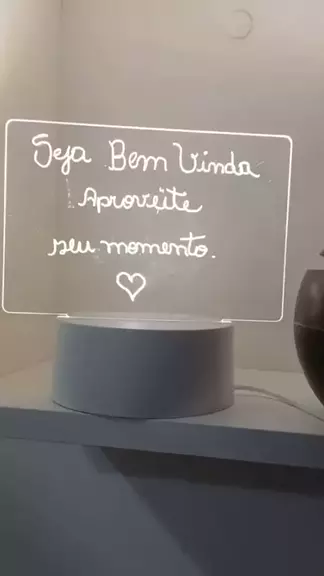 Seja Bem Vinda
Aproveite
seu momento.
♡